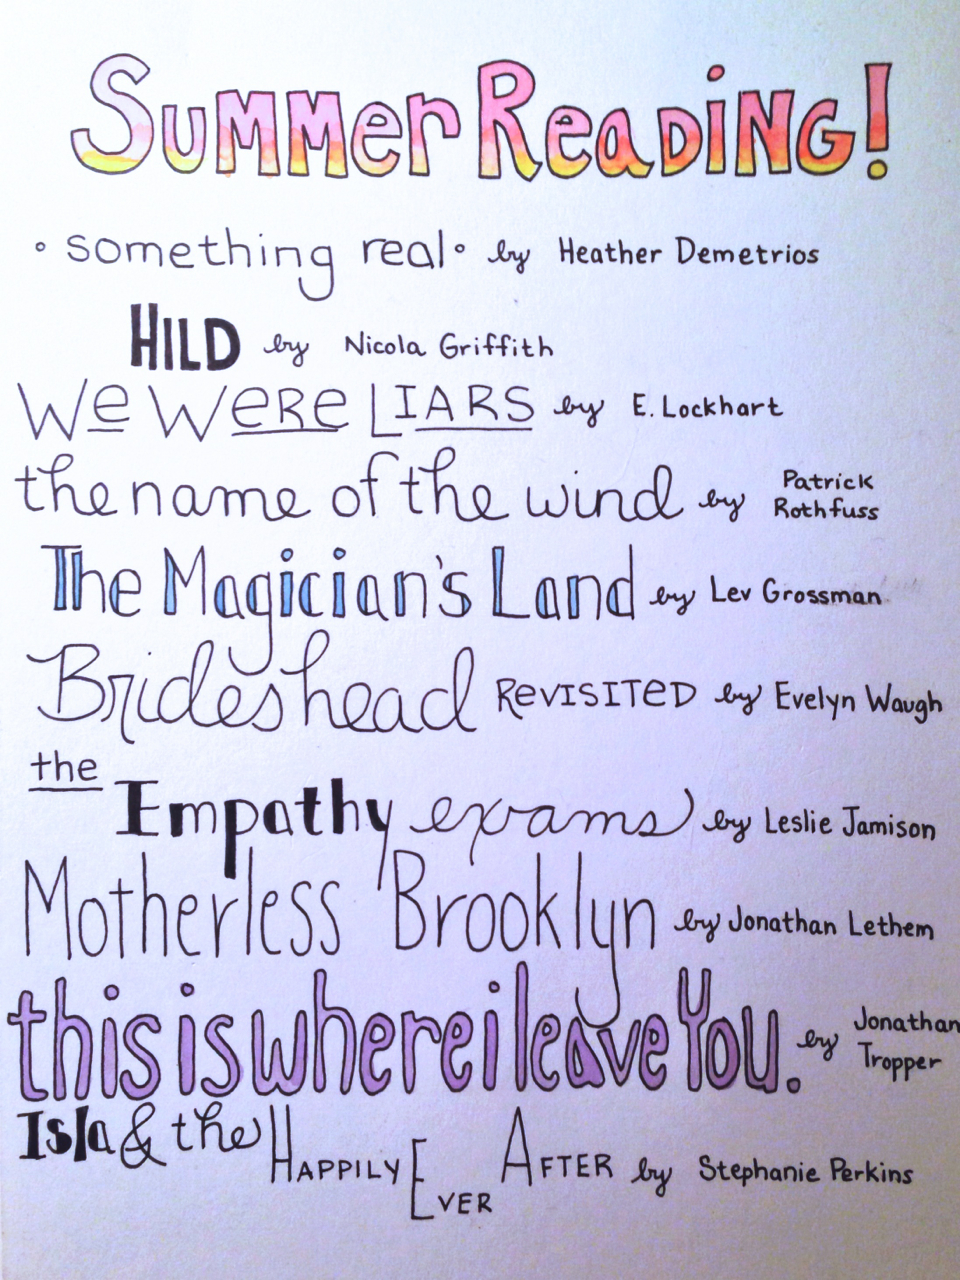 Summer Reading!
something real by Heather Demetrios
HILD by Nicola Griffith
We Were LIARS by E. Lockhart
the name of the wind by Patrick Rothfuss
The Magician's Land by Lev Grossman
Brideshead ReVISITeD by Evelyn Waugh
the Empathy exams by Leslie Jamison
Motherless Brooklyn by Jonathan Lethem
this is where i leave You. by Jonathan Tropper
Isla & the HAPPILY EVER AFTER by Stephanie Perkins